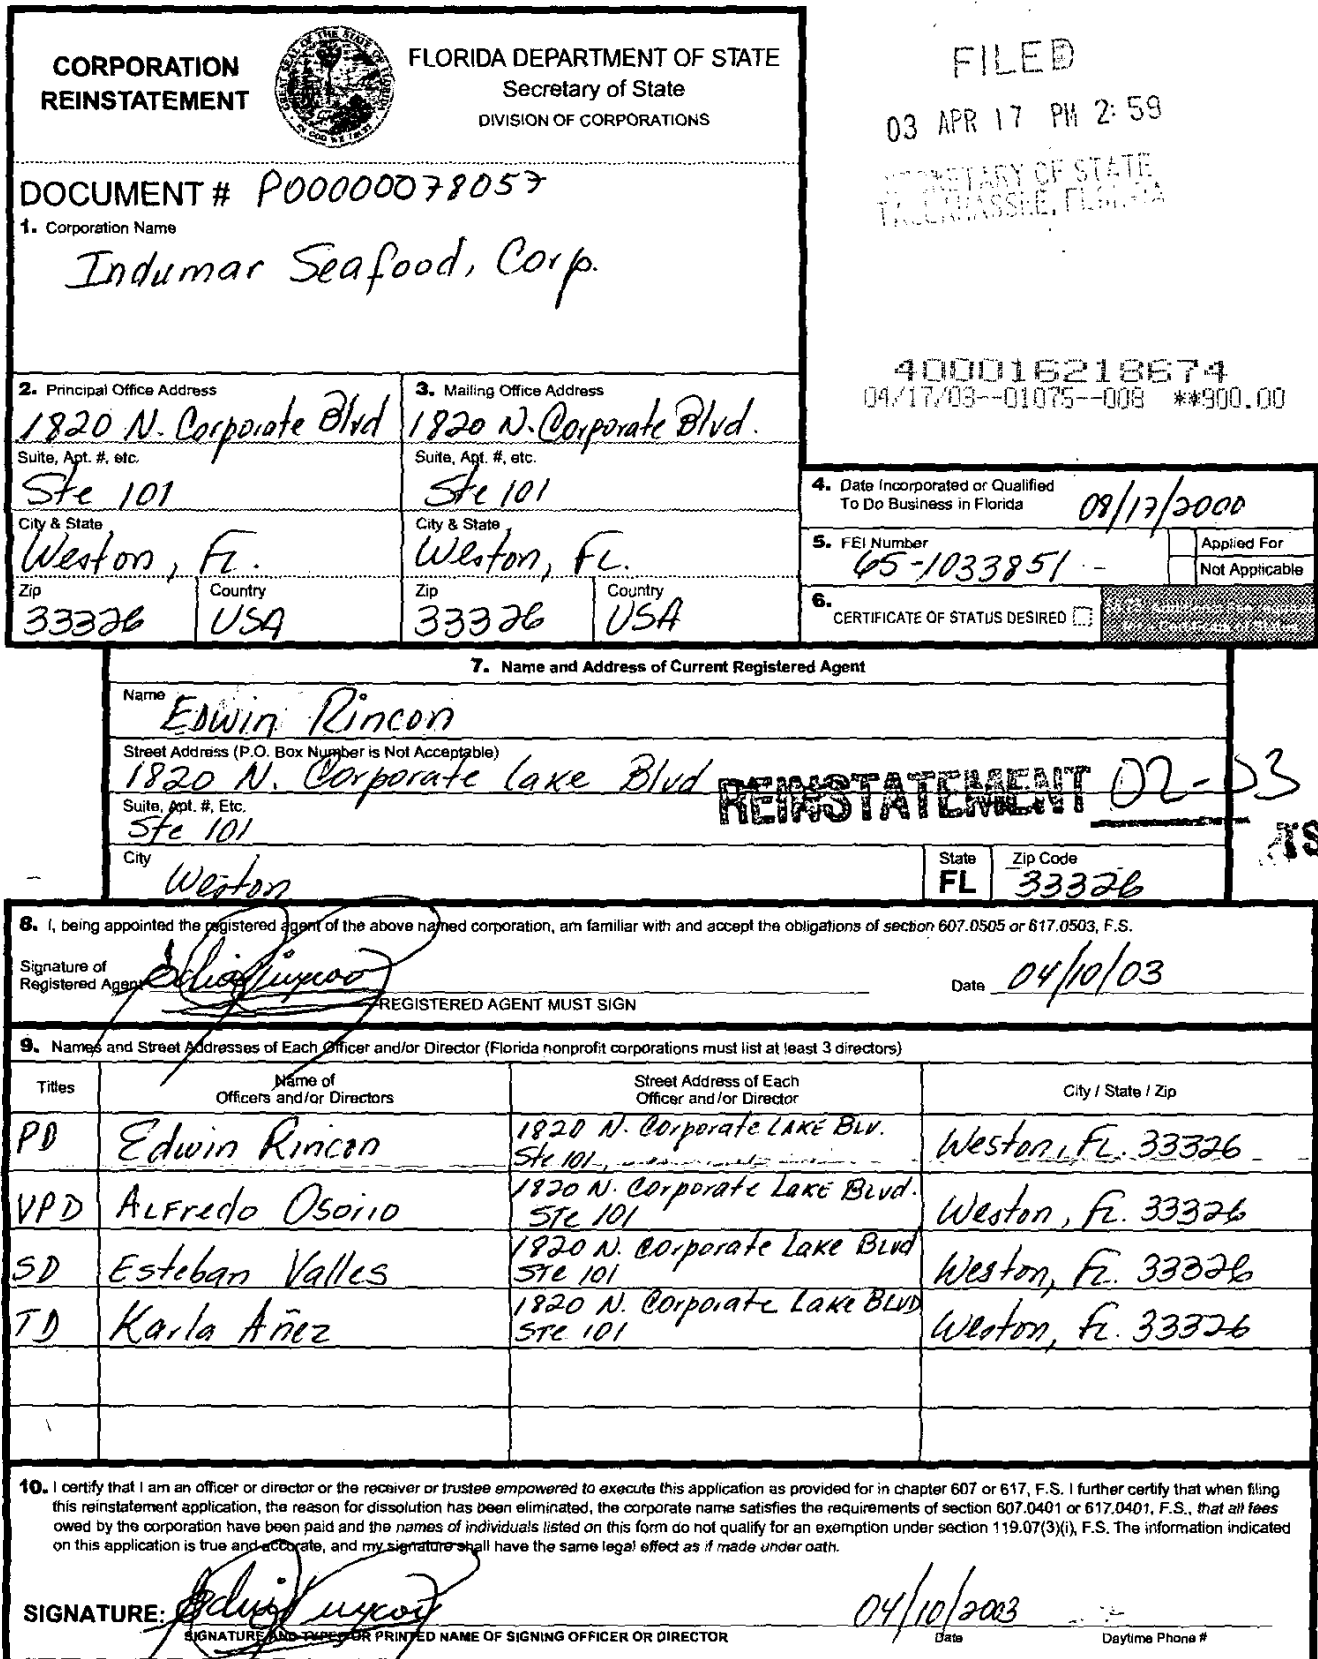 CORPORATION
REINSTATEMENT
FLORIDA DEPARTMENT OF STATE
Secretary of State
DIVISION OF CORPORATIONS
FILED
03 APR 17 PM 2:59
SECRETARY OF STATE
TALLAHASSEE, FLORIDA
DOCUMENT # P00000078057
1. Corporation Name
Indumar Seafood, Corp.
400016218674
04/17/03--01075--008 **900.00
2. Principal Office Address
1820 N. Corporate Blvd
3. Mailing Office Address
1820 N. Corporate Blvd.
Suite, Apt. #, etc.
Ste 101
Suite, Apt. #, etc.
Ste 101
City & State
Weston, FL.
City & State
Weston, FL.
Zip
33326
Country
USA
Zip
33326
Country
USA
4. Date Incorporated or Qualified
To Do Business in Florida
08/17/2000
5. FEI Number
65-1033851
Applied For
Not Applicable
6. CERTIFICATE OF STATUS DESIRED
7. Name and Address of Current Registered Agent
Name
Edwin Rincon
Street Address (P.O. Box Number is Not Acceptable)
1820 N. Corporate Lake Blvd
REINSTATEMENT 02-03
Suite, Apt. #, Etc.
Ste 101
City
Weston
State
FL
Zip Code
33326
8. I, being appointed the registered agent of the above named corporation, am familiar with and accept the obligations of section 607.0505 or 617.0503, F.S.
Signature of
Registered Agent
Date 04/10/03
REGISTERED AGENT MUST SIGN
9. Names and Street Addresses of Each Officer and/or Director (Florida nonprofit corporations must list at least 3 directors)
Titles
Name of
Officers and/or Directors
Street Address of Each
Officer and/or Director
City / State / Zip
PD Edwin Rincon 1820 N. Corporate LAKE BLV. Weston, FL. 33326
Ste 101,
VPD ALFredo Osorio 1820 N. Corporate Lake Blvd. Weston, FL. 33326
STE 101
SD Esteban Valles 1820 N. Corporate Lake Blvd Weston, FL. 33326
STE 101
TD Karla Añez 1820 N. Corporate Lake BLVD Weston, FL. 33326
STE 101
10. I certify that I am an officer or director or the receiver or trustee empowered to execute this application as provided for in chapter 607 or 617, F.S. I further certify that when filing
this reinstatement application, the reason for dissolution has been eliminated, the corporate name satisfies the requirements of section 607.0401 or 617.0401, F.S., that all fees
owed by the corporation have been paid and the names of individuals listed on this form do not qualify for an exemption under section 119.07(3)(i), F.S. The information indicated
on this application is true and accurate, and my signature shall have the same legal effect as if made under oath.
SIGNATURE:
04/10/2003
SIGNATURE AND TYPED OR PRINTED NAME OF SIGNING OFFICER OR DIRECTOR
Date
Daytime Phone #